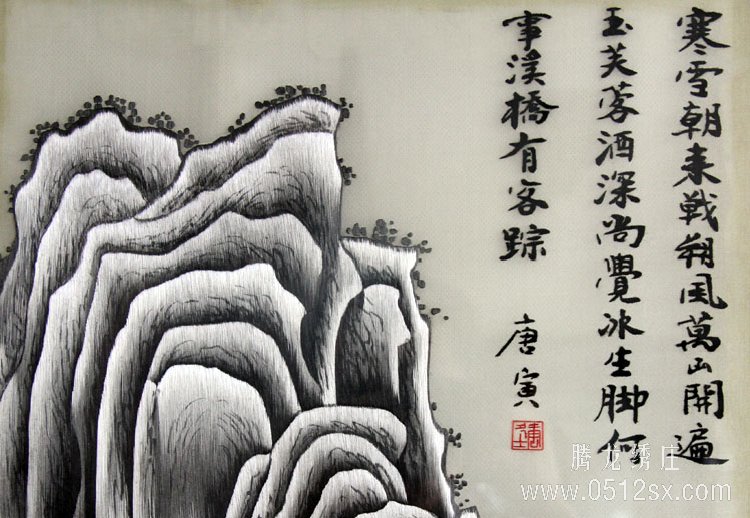 寒雪朝来戰朔風萬山開遍
玉芙蓉酒深尚覺冰生脚何
事溪橋有客踪
唐寅
腾龙绣庄
www.0512sx.com